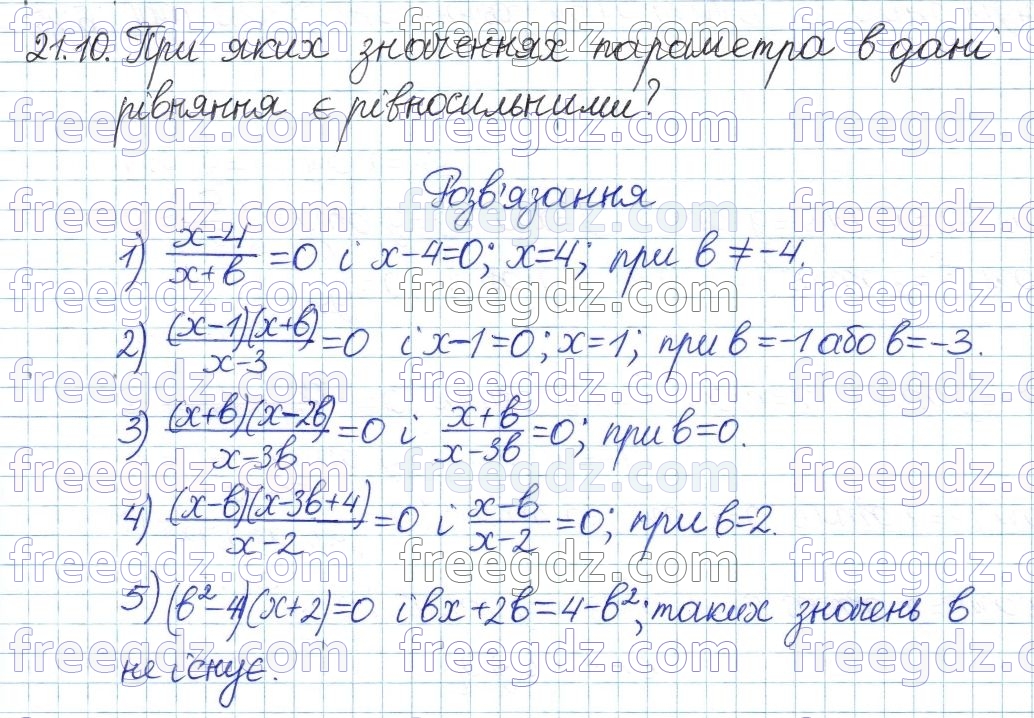 21.10. При яких значеннях параметра b дані
рівняння є рівносильними?
Розв'язання
1) (x-4)/(x+b) = 0 і x-4=0; x=4; при b ≠ -4.
2) ((x-1)(x+b))/(x-3) = 0 і x-1=0; x=1; при b=-1 або b=-3.
3) ((x+b)(x-2b))/(x-3b) = 0 і (x+b)/(x-3b) = 0; при b=0.
4) ((x-b)(x-3b+4))/(x-2) = 0 і (x-b)/(x-2) = 0; при b=2.
5) (b²-4)(x+2)=0 і bx+2b=4-b²; таких значень b
не існує.
freegdz.com